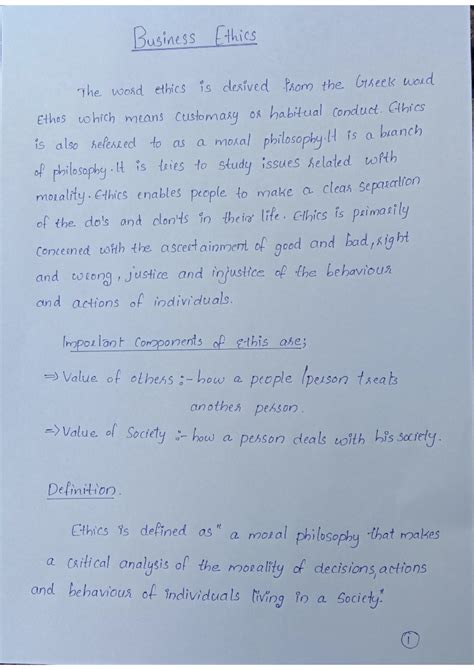 Business Ethics
The word ethics is derived from the Greek word
Ethos which means customary or habitual conduct. Ethics
is also refereed to as a moral philosophy. It is a branch
of philosophy. It is tries to study issues related with
morality. Ethics enables people to make a clear separation
of the do's and don'ts in their life. Ethics is primarily
concerned with the ascertainment of good and bad, right
and wrong, justice and injustice of the behaviour
and actions of individuals.
Important Components of Ethis are;
⇒ Value of others :- how a people /person treats
another person.
⇒ Value of Society :- how a person deals with his society.
Definition.
Ethics is defined as " a moral philosophy that makes
a critical analysis of the morality of decisions, actions
and behaviour of individuals living in a society."
1